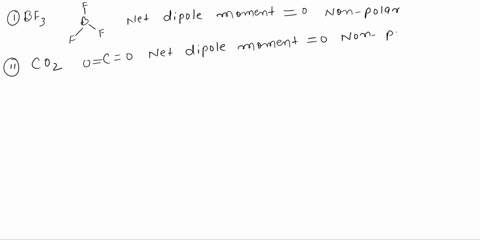 ① BF3 F B F F Net dipole moment = 0 Non-polar
⑪ CO2 O=C=O Net dipole moment = 0 Non- p